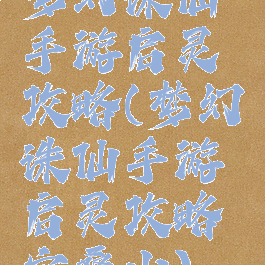 梦幻诛仙
手游启灵
攻略(梦幻
诛仙手游
启灵攻略